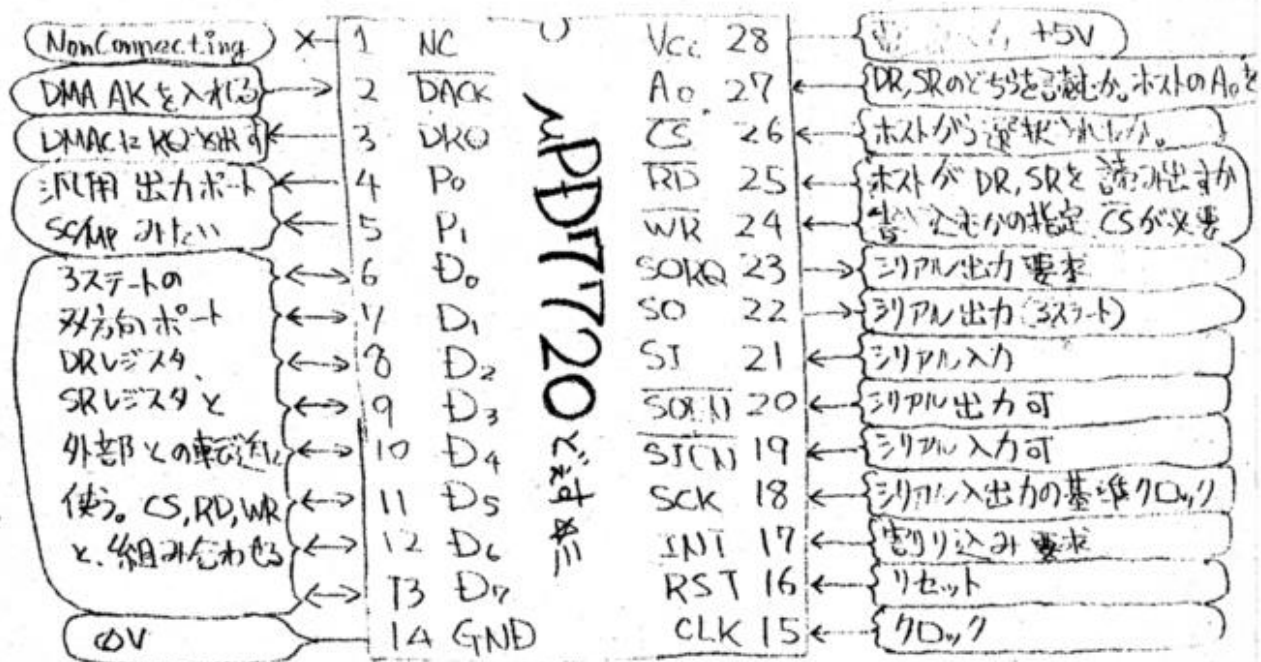 NonConnecting
DMA AKを入れる
DMACにRQを出す
汎用 出力ポート
SC/MP みたい
3ステートの
双方向ポート
DRレジスタ、
SRレジスタと
外部との転送に
使う。CS,RD,WR
と、組み合わせる
0V
1 NC
2 DACK
3 DRQ
4 P0
5 P1
6 D0
7 D1
8 D2
9 D3
10 D4
11 D5
12 D6
13 D7
14 GND
μPD7720どぇす
Vcc 28
A0 27
CS 26
RD 25
WR 24
SORQ 23
SO 22
SI 21
SOEN 20
SIEN 19
SCK 18
INT 17
RST 16
CLK 15
+5V
DR,SRのどちらを読むか。ホストのA0を
ホストから選択されたか。
ホストが DR,SRを 読み出すか
書き込むかの指定.CSが必要
シリアル出力 要求
シリアル出力(3ステート)
シリアル入力
シリアル出力可
シリアル入力可
シリアル入出力の基準クロック
割り込み 要求
リセット
クロック